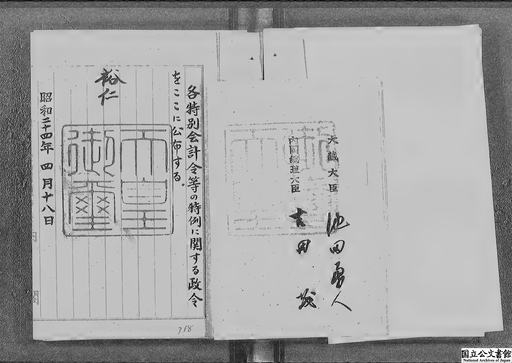 各特別会計令等の特例に関する政令
をここに公布する。
裕仁
天皇
御璽
昭和二十四年四月十八日
大蔵大臣 池田勇人
内閣総理大臣 吉田茂
718
国立公文書館
National Archives of Japan